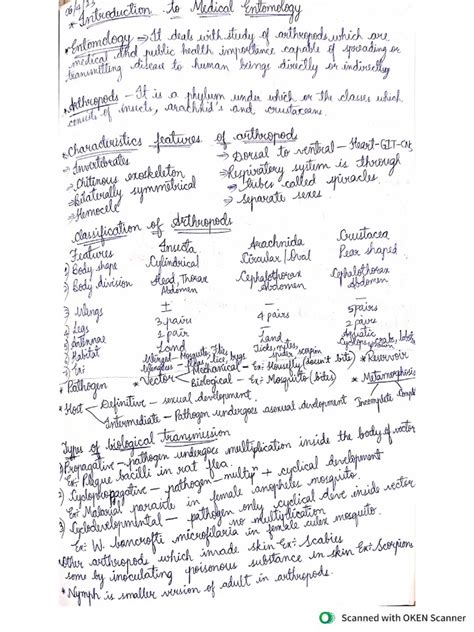 * Introduction to Medical Entomology
* Entomology → It deals with study of arthropods which are
medical and public health importance capable of spreading or
transmitting disease to human beings directly or indirectly
* Arthropods - It is a phylum under which or the classes which
consists of insects, arachnids and crustaceans.
* Characteristics features of arthropods
→ Invertebrates
→ Chitinous exoskeleton
→ Bilaterally symmetrical
→ Hemocele
→ Dorsal to ventral - Heart-GIT-CNS
→ Respiratory system is through
tubes called spiracles
→ Separate sexes
Classification of Arthropods
Features Insecta Arachnida Crustacea
1) Body shape Cylindrical Circular/Oval Pear shaped
2) Body division Head, Thorax Abdomen Cephalothorax Abdomen Cephalothorax Abdomen
3) Wings ± — —
4) Legs 3 pairs 4 pairs 5 pairs
5) Antennae 1 pair — 2 pairs
6) Habitat Land Land Aquatic
7) Ex: Winged - Mosquito, flies, bugs Ticks, mites, spider Cyclops, crab
* Pathogen * Vector Mechanical - Ex: Housefly (doesn't bite) * Reservoir
Biological - Ex: Mosquito (bites) * Metamorphosis
* Host Definitive - sexual development. Incomplete
Intermediate - Pathogen undergoes asexual development
Types of biological transmission
1) Propagative - pathogen undergoes multiplication inside the body of vector
Ex: Plague bacilli in rat flea.
2) Cyclopropagative - pathogen multipn + cyclical development
Ex: Malarial parasite in female anopheles mosquito.
3) Cyclodevelopmental - pathogen only cyclical deve inside vector
no multiplication
Ex: W. bancrofti microfilaria in female culex mosquito.
* Other arthropods which invade skin Ex: Scabies
some by inoculating poisonous substance in skin Ex: Scorpions
* Nymph is smaller version of adult in arthropods.
Scanned with OKEN Scanner